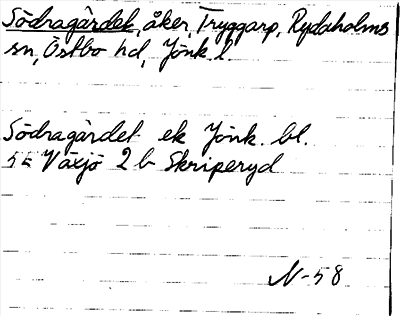 Södragärdet, åker, Tryggarp, Rydaholms
sn, Östbo hd, Jönk. l.
Södragärdet ek Jönk. bl.
5E Växjö 2b Skriperyd
N-58